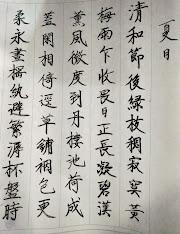 夏日
清和節後綠枝稠寂寞黃
梅雨乍收畏日正長凝碧漢
薰風微度到丹楼池荷成
蓋閑相倚逕草鋪裀色更
柔永晝搖紈避繁溽杯盤時